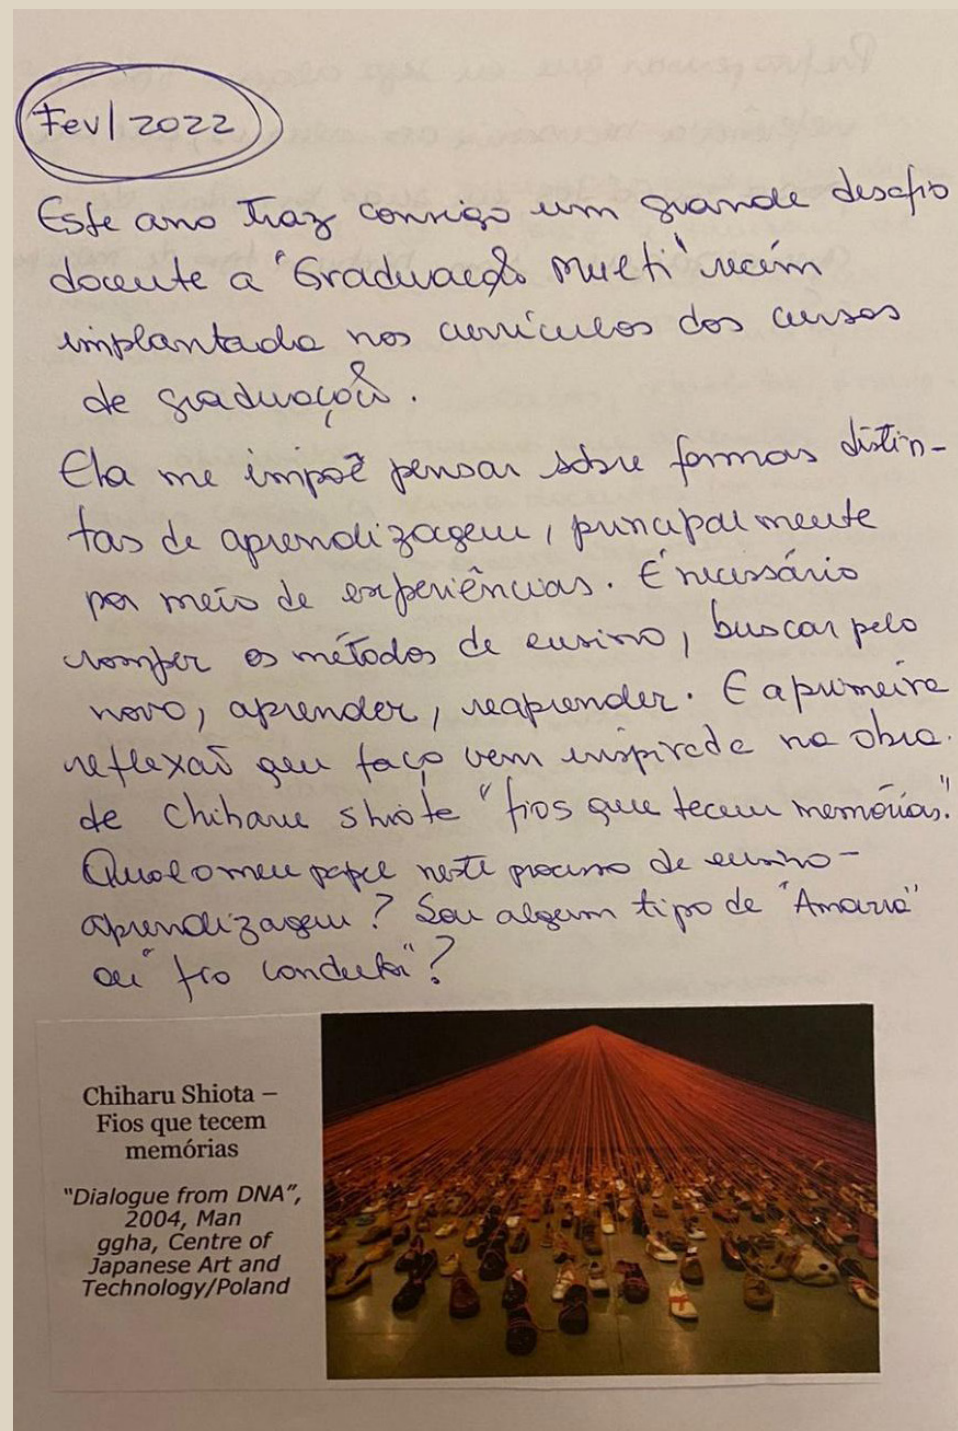 Fev/2022
Este ano traz consigo um grande desafio
docente a "Graduação Multi" recém
implantada nos currículos dos cursos
de graduação.
Ela me impõe pensar sobre formas distin-
tas de aprendizagem, principalmente
por meio de experiências. É necessário
romper os métodos de ensino, buscar pelo
novo, aprender, reaprender. E a primeira
reflexão que faço vem inspirada na obra
de Chiharu Shiote "fios que tecem memórias".
Qual o meu papel neste processo de ensino-
aprendizagem? Sou algum tipo de
ou "fio condutor"?
Chiharu Shiota –
Fios que tecem
memórias
"Dialogue from DNA",
2004, Man
ggha, Centre of
Japanese Art and
Technology/Poland